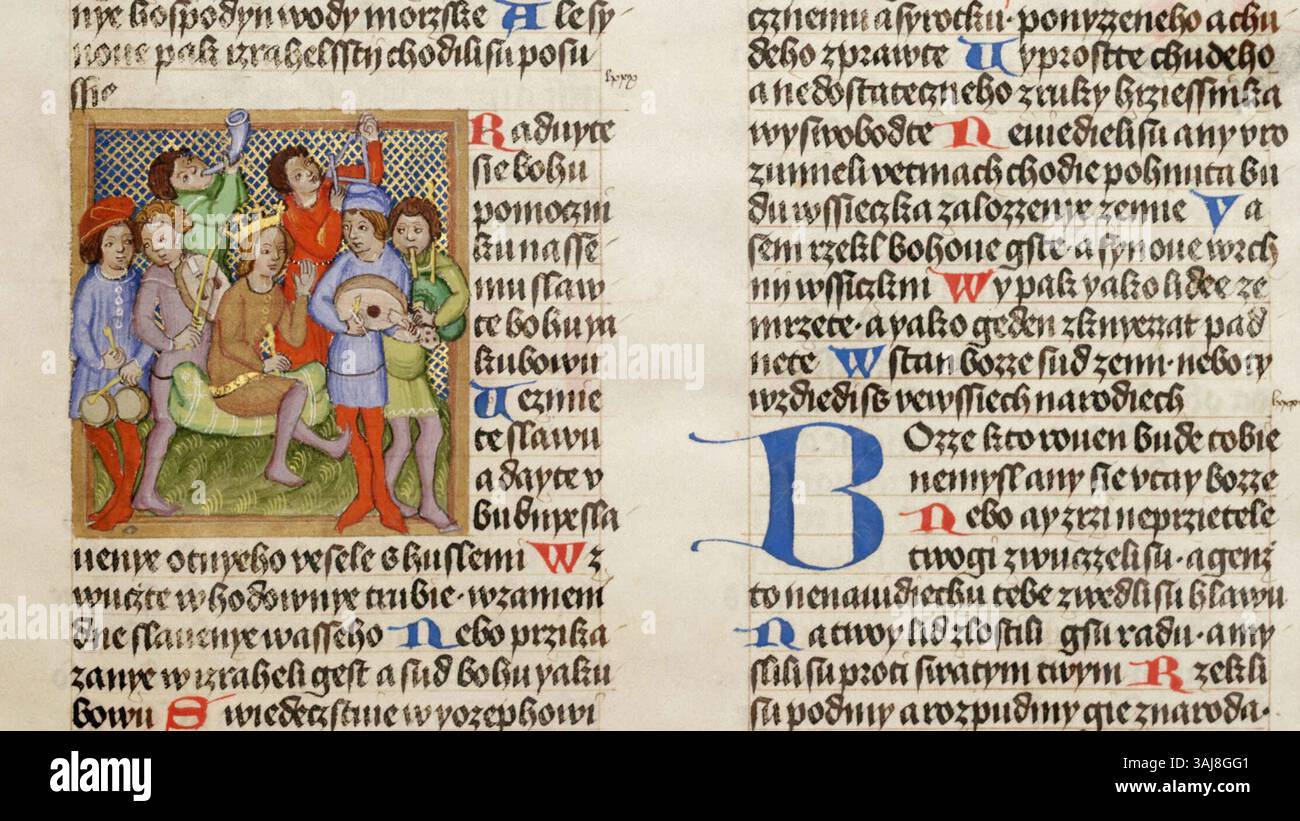 nye hospodyn wody morzske Ale sy
nowe pak izrahelsstij chodili su po su
ssie
lxxx
Raduyte
sie bohu
pomoczni
ku nasse
mu slaw
te bohu ya
kubowu
Wezmie
te slawu
a dayte v
bubnye sla
wenye otnyeho vesele s huslemi Wz
wuczte w hodownye trubie · wzameni
dne slawenye wasseho Nebo przika
zanye w izraheli gest a sud bohu yaku
bowu Swiedeczstwie w yozephowi
cznemu a syrotku · ponyzzeneho a chu
deho zprawte Vyprostte chudeho
a nedostateczneho z ruky hrziessnika
wyswobodte Neuwiedieli su any vro
zumieli vetmach chodie pohnuta bu
du wssieczka zalozzenye zemie Ya
sem rzekl bohowe gste · a synowe wrch
ni wssiczkni Wy pak yako lidee ze
mrzete · a yako geden z knyezzat pad
nete Wstan bozze sud zemi · nebo ty
wzdiedis vewssiech narodiech
Bozze kto rowen bude tobie
nemysl any sie vtay bozze
Nebo ay zrzi neprzietele
twogi zwuczeli su · a genz
to nenawidiechu tebe zwedli su hlawu
Na twoy lid zlostili gsu radu · a my
slili su proti swatym twym Rzekli
su podmy a rozpudmy gie z naroda ·
alamy
Image ID: 3AJ8GG1
www.alamy.com